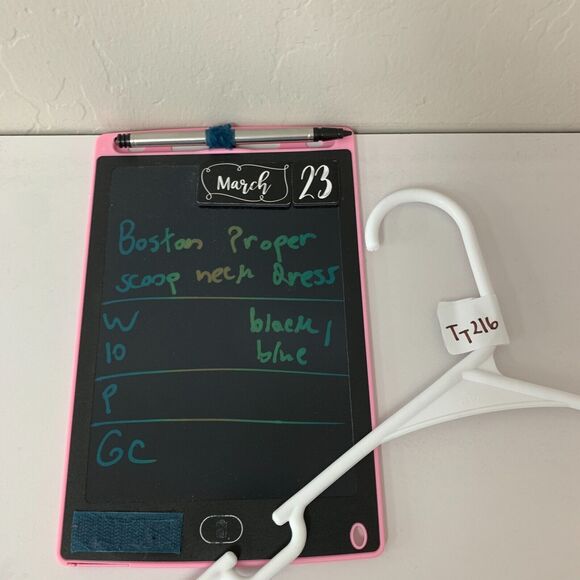 March 23
Boston Proper
scoop neck Dress
W black/
10 blue
P
GC
TT216